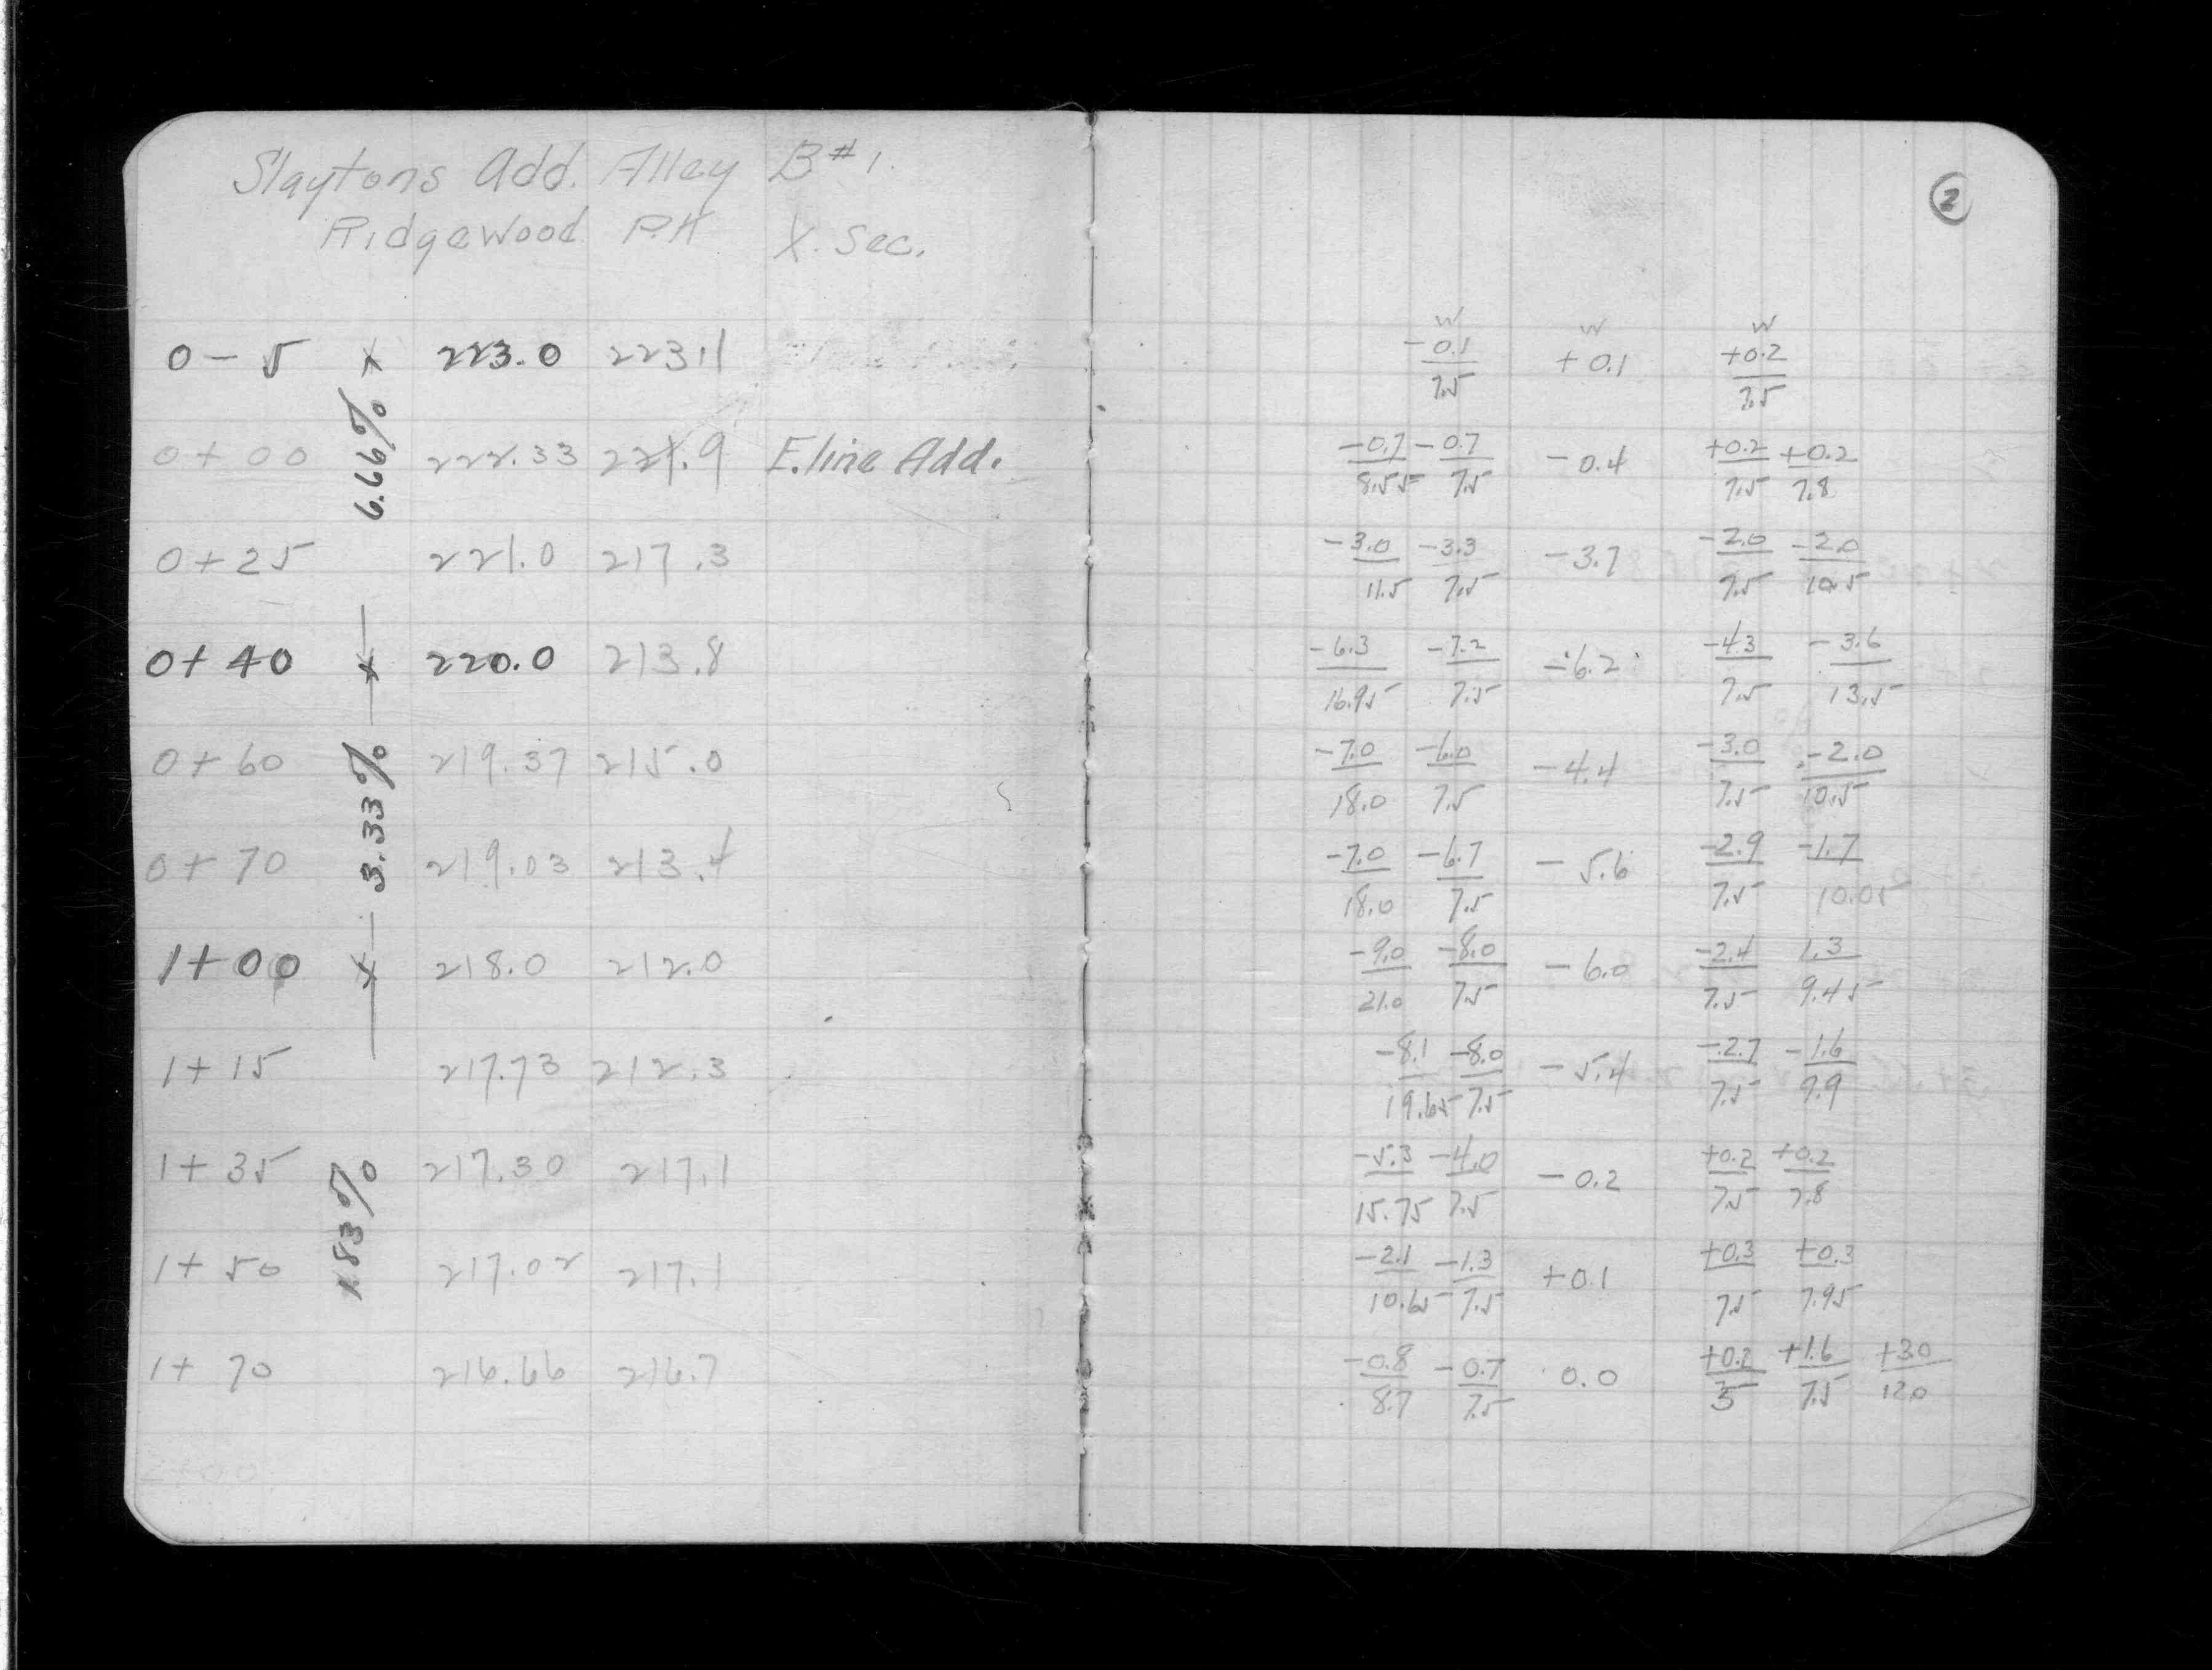 Slaytons Add. Alley B#1.
Ridgewood P.K X. Sec.
0 - 5 x 223.0 223.1
0 + 00 222.33 221.9 E.line Add.
0 + 25 221.0 217.3
0 + 40 x 220.0 213.8
0 + 60 219.37 215.0
0 + 70 219.03 213.4
1 + 00 x 218.0 212.0
1 + 15 217.73 212.3
1 + 35 217.30 217.1
1 + 50 217.02 217.1
1 + 70 216.66 216.7
2+00
6.66%
3.33%
1.83%
2
W W W
-0.1 +0.1 +0.2
7.5 7.5
-0.7 -0.7 -0.4 +0.2 +0.2
8.55 7.5 7.5 7.8
-3.0 -3.3 -3.7 -2.0 -2.0
11.5 7.5 7.5 10.5
-6.3 -7.2 -6.2 -4.3 -3.6
16.95 7.5 7.5 13.5
-7.0 -6.0 -4.4 -3.0 -2.0
18.0 7.5 7.5 10.5
-7.0 -6.7 -5.6 -2.9 -1.7
18.0 7.5 7.5 10.05
-9.0 -8.0 -6.0 -2.4 1.3
21.0 7.5 7.5 9.45
-8.1 -8.0 -5.4 -2.7 -1.6
19.65 7.5 7.5 9.9
-5.3 -4.0 -0.2 +0.2 +0.2
15.75 7.5 7.5 7.8
-2.1 -1.3 +0.1 +0.3 +0.3
10.65 7.5 7.5 7.95
-0.8 -0.7 0.0 +0.2 +1.6 +3.0
8.7 7.5 5 7.5 12.0